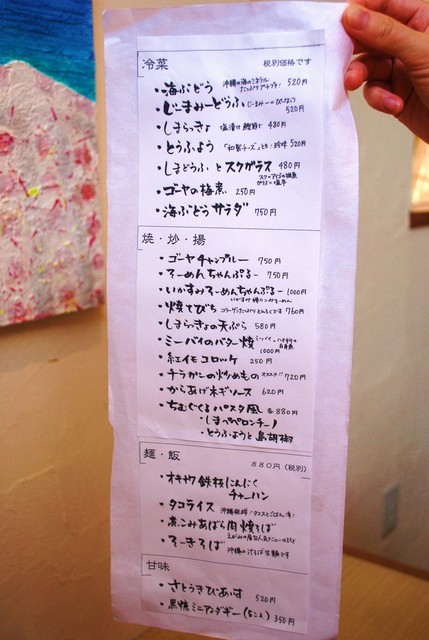 冷菜 税別価格です
・海ぶどう 沖縄の海のミネラル たっぷりプチプチ! 520円
・じーまみーどうふ じーまみー=ピーナッツ 520円
・しまらっきょ 塩漬け 鰹節で 480円
・とうふよう 「和製チーズ」とも!珍味 520円
・しまどうふ と スクガラス 480円
スク=アイゴの稚魚
ガラス=塩辛
・ゴーヤの梅煮 250円
・海ぶどうサラダ 750円
焼・炒・揚
・ゴーヤチャンプルー 750円
・そーめんちゃんぷるー 750円
・いかすみそーめんちゃんぷるー 1000円
・焼てびち コラーゲンたっぷり とんそくです 760円
・しまらっきょの天ぷら 580円
・ミーバイのバター焼 ミーバイ=ハタ科の白身魚
1000円
・紅イモコロッケ 250円
・チラガーの炒めもの オススメ!! 720円
・からあげネギソース 620円
・ちむぐくるパスタ風 各880円
・しまペペロンチーノ
・とうふようと島胡椒
麺・飯 880円(税別)
・オキナワ鉄板にんにく
チャーハン
・タコライス 沖縄発祥!タコスとごはん
・煮こみあばら肉焼そば
・そーきそば 沖縄の汁そば 豚です
甘味
・さとうきびあいす 520円
・黒糖ミニアンダギー(5こ入) 350円